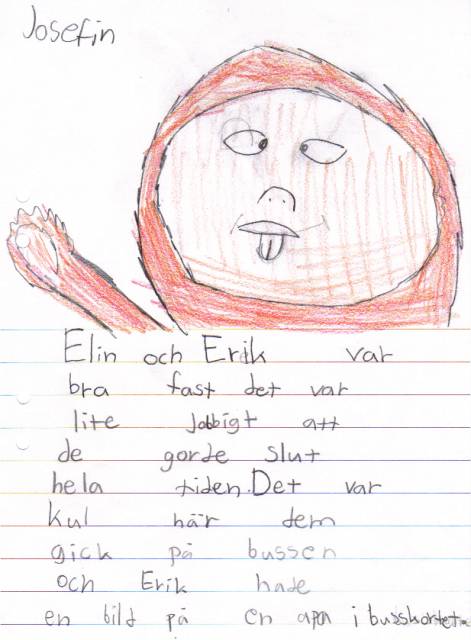 Josefin
Elin och Erik var
bra fast det var
lite jobbigt att
de gorde slut
hela tiden. Det var
kul här dem
gick på bussen
och Erik hade
en bild på en apa i busskortet.